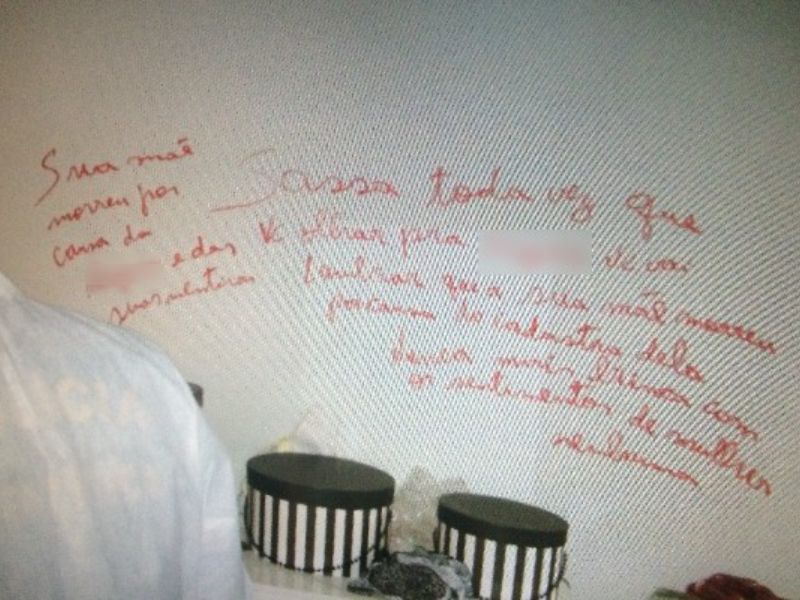 Sua mãe
morreu por
causa da
e das
suas mentiras
Jassa toda vez que
vc olhar pra vc vai
lembrar que a sua mãe morreu
por causa do cadastro dela
nunca mais brinca com
os sentimentos de mulher
nenhuma